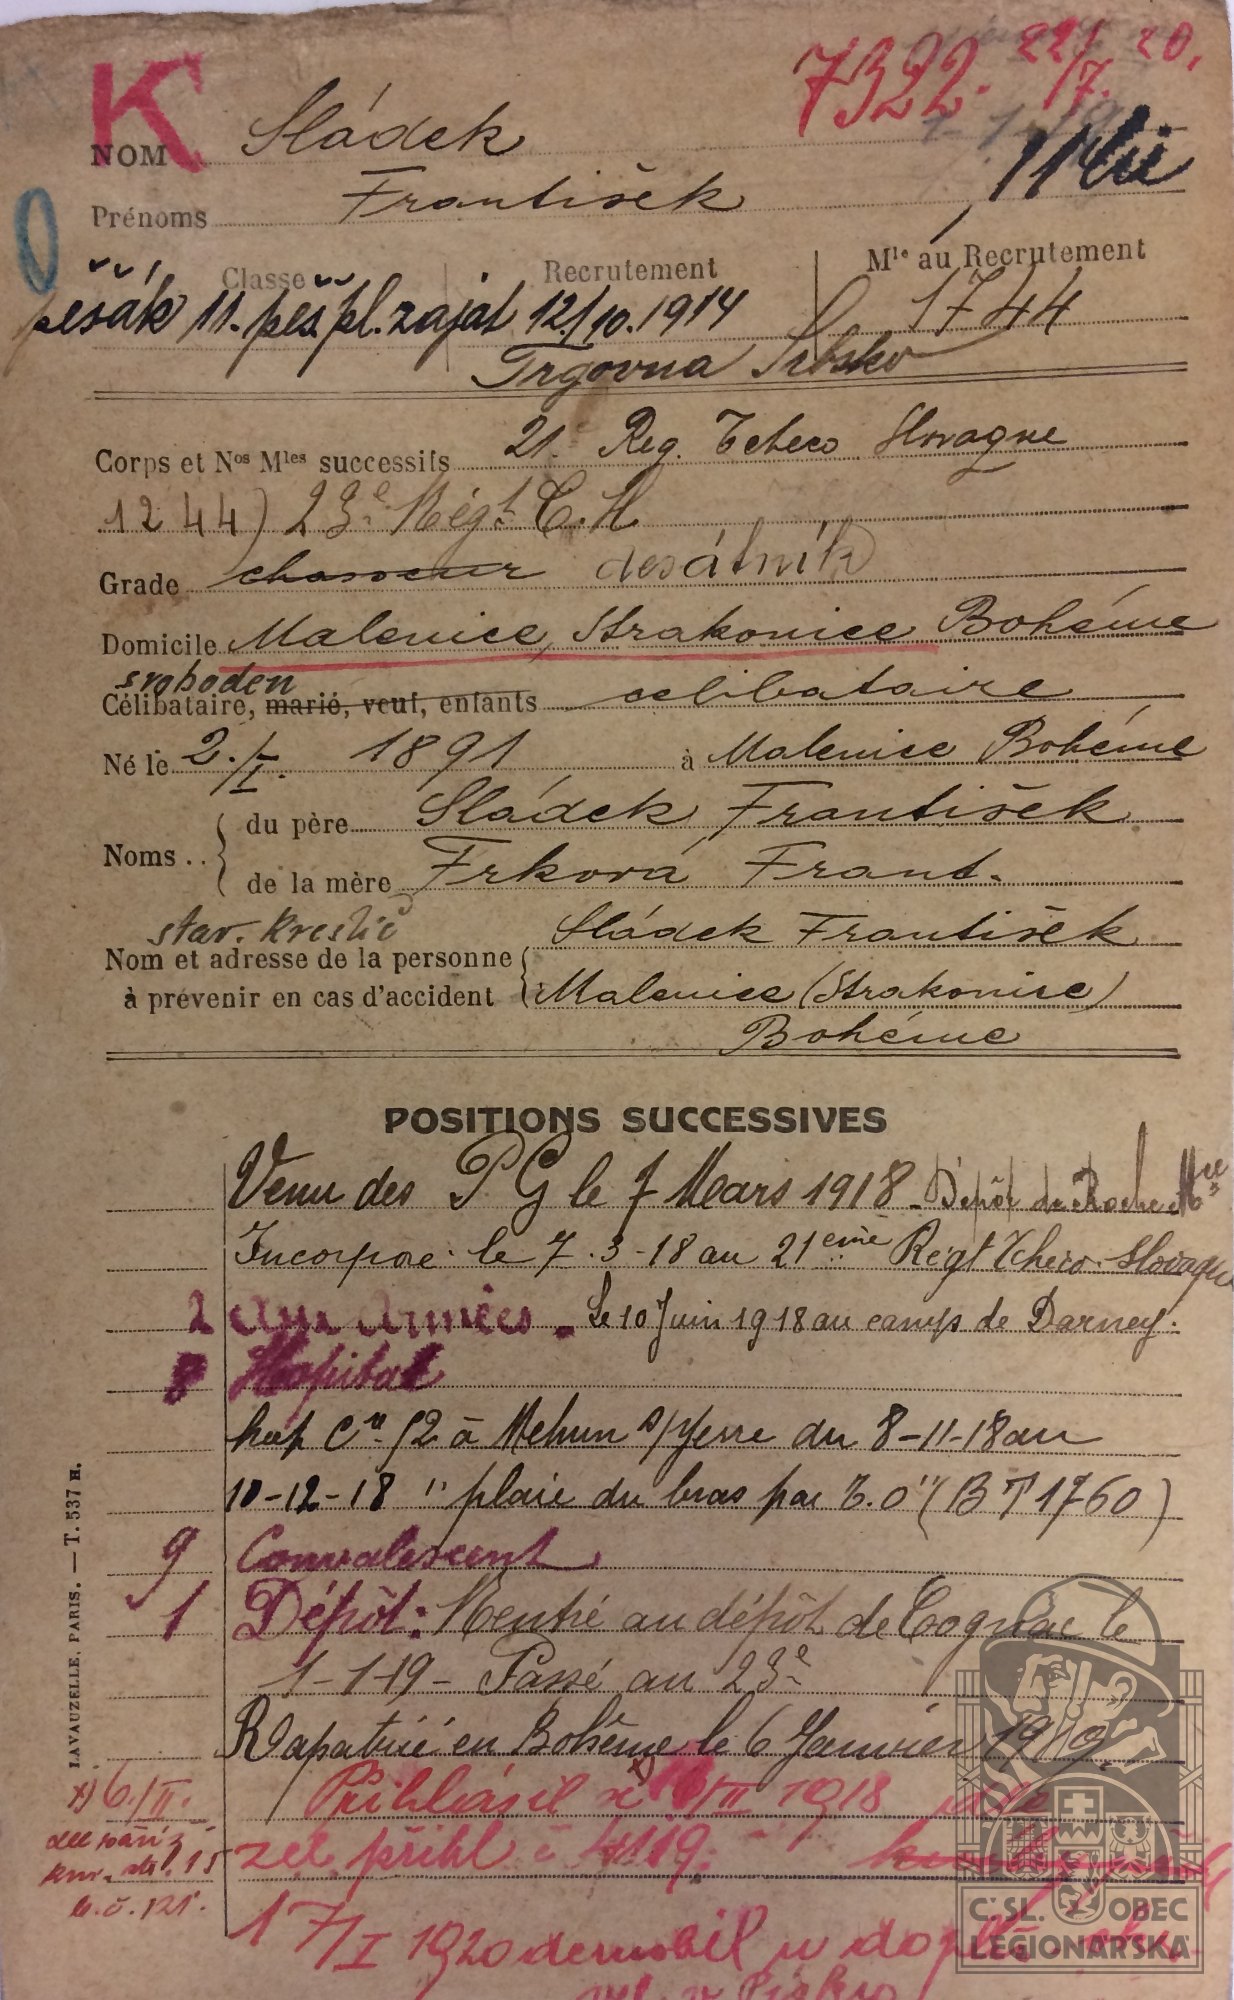 K
7322. 22/7. 20.
NOM Sládek
Prénoms František
Classe Recrutement Mle au Recrutement
pěšák 11. pěš. pl. zajat 12./10. 1914 1744
Trgovna Srbsko
Corps et Nos Mles successifs 21. Reg. Tcheco Slovaque
1244) 23e Régt. C. Sl
Grade chasseur desátník
Domicile Malenice, Strakonice Bohéme
svoboden
Célibataire, marié, veuf, enfants célibataire
Né le 2./I. 1891 à Malenice Bohéme
Noms .. du père Sládek František
de la mère Frková Frant.
stav. kreslič
Nom et adresse de la personne Sládek František
à prévenir en cas d'accident Malenice (Strakonice)
Bohéme
POSITIONS SUCCESSIVES
Venu des P G le 7 Mars 1918 - Dépôt de
Incorporé le 7.3-18 au 21eme Régt Tcheco-Slovaque
2 Aux Armées. Le 10 Juin 1918 au camp de Darney.
Hopital
hop Cre 52 à Mehun s/Yevre du 8-11-18 au
10-12-18 "plaie du bras par E.O" (BT 1760)
9 Convalescent
1 Dépôt: Rentré au dépôt de Cognac le
1-1-19 - Passé au 23e
Rapatrié en Bohême le 6 Janvier 1919.
x) 6./II. Přihlásil x) /II 1918
zel přihl
č. 121.
17/I 1920 demobil u
v Písku
LAVAUZELLE, PARIS. — T. 537 H.
Č. SL. OBEC
LEGIONÁŘSKÁ